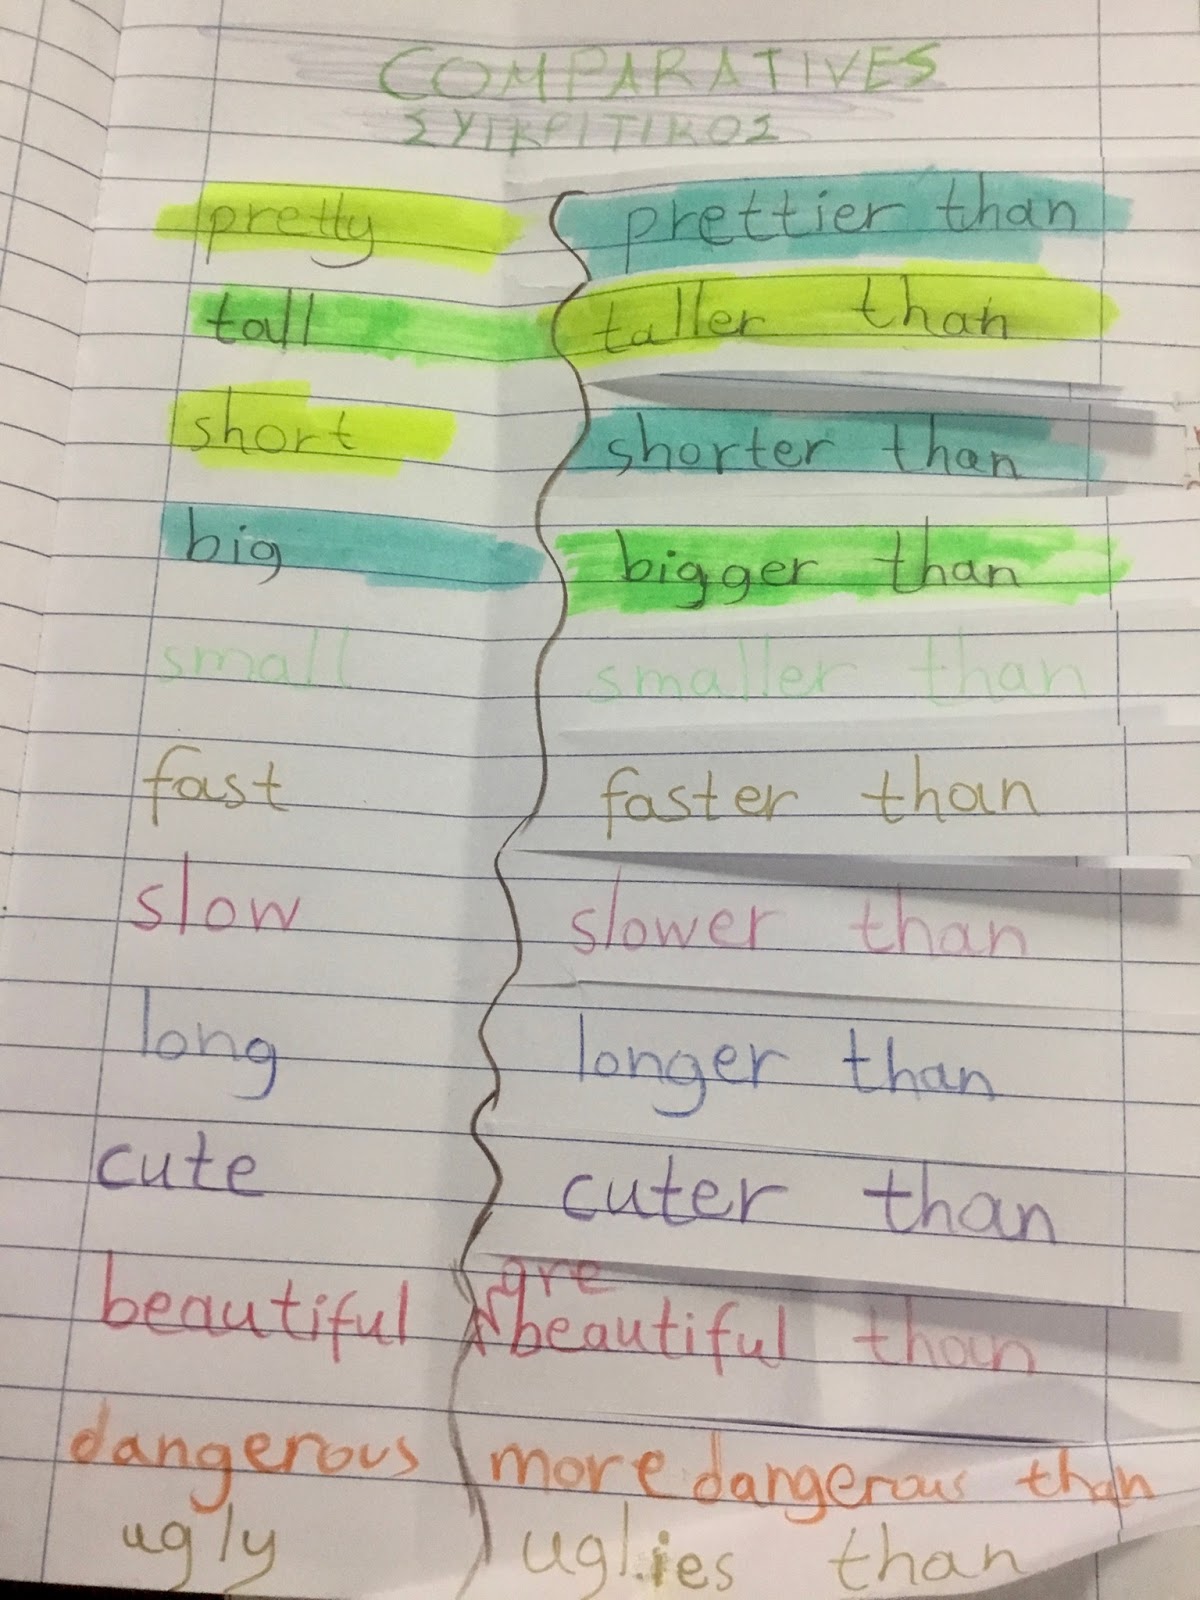 COMPARATIVES
ΣΥΓΚΡΙΤΙΚΟΣ
pretty prettier than
tall taller than
short shorter than
big bigger than
small smaller than
fast faster than
slow slower than
long longer than
cute cuter than
beautiful more beautiful than
dangerous more dangerous than
ugly uglies than